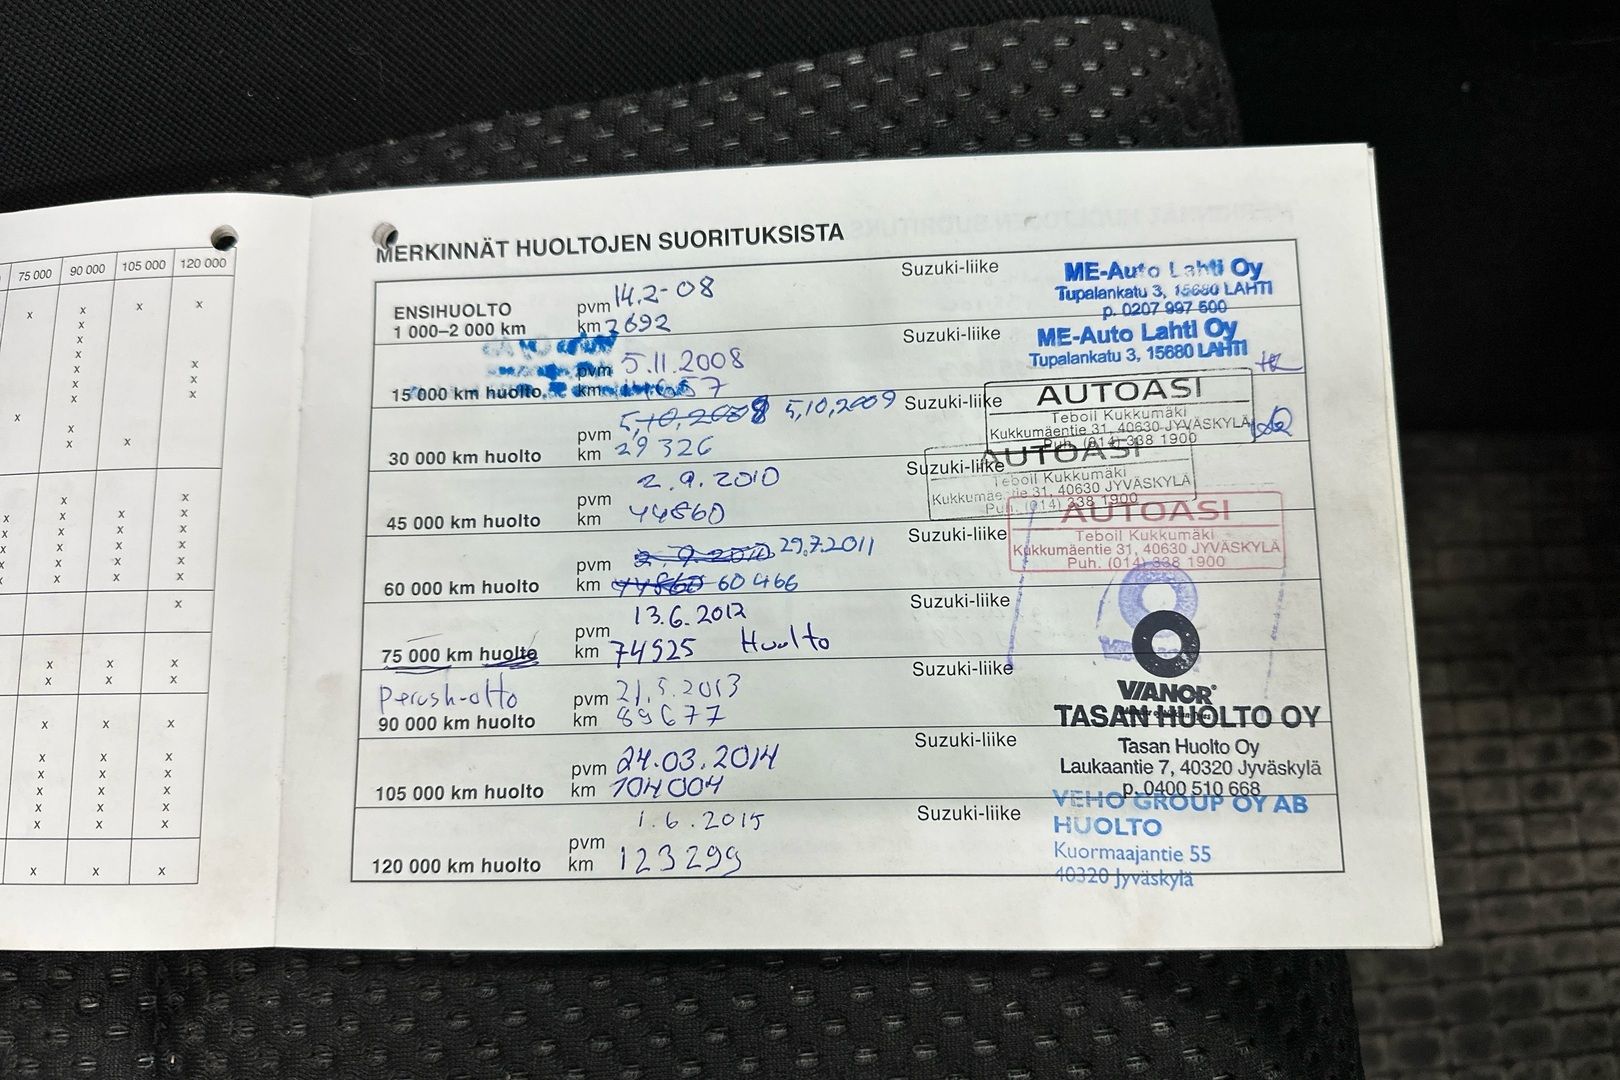 75 000 90 000 105 000 120 000
MERKINNÄT HUOLTOJEN SUORITUKSISTA
ENSIHUOLTO
1 000–2 000 km
pvm 14.2-08
km 2692
Suzuki-liike
ME-Auto Lahti Oy
Tupalankatu 3, 15680 LAHTI
p. 0207 997 600
15 000 km huolto
pvm 5.11.2008
km
Suzuki-liike
ME-Auto Lahti Oy
Tupalankatu 3, 15680 LAHTI
30 000 km huolto
5,10,2009
pvm
km 29326
Suzuki-liike
AUTOASI
Teboil Kukkumäki
Kukkumäentie 31, 40630 JYVÄSKYLÄ
Puh. (014) 338 1900
45 000 km huolto
2.9.2010
pvm
km 44860
Suzuki-liike
AUTOASI
Teboil Kukkumäki
Kukkumäentie 31, 40630 JYVÄSKYLÄ
Puh. (014) 338 1900
60 000 km huolto
pvm 2.9.2010 29.7.2011
km 44860 60466
Suzuki-liike
AUTOASI
Teboil Kukkumäki
Kukkumäentie 31, 40630 JYVÄSKYLÄ
Puh. (014) 338 1900
75 000 km huolto
13.6.2012
pvm
km 74925 Huolto
Suzuki-liike
Perushuolto
90 000 km huolto
pvm 21.5.2013
km 89677
Suzuki-liike
VIANOR
105 000 km huolto
pvm 24.03.2014
km 104004
Suzuki-liike
TASAN HUOLTO OY
Tasan Huolto Oy
Laukaantie 7, 40320 Jyväskylä
p. 0400 510 668
120 000 km huolto
1.6.2015
pvm
km 123299
Suzuki-liike
VEHO GROUP OY AB
HUOLTO
Kuormaajantie 55
40320 Jyväskylä